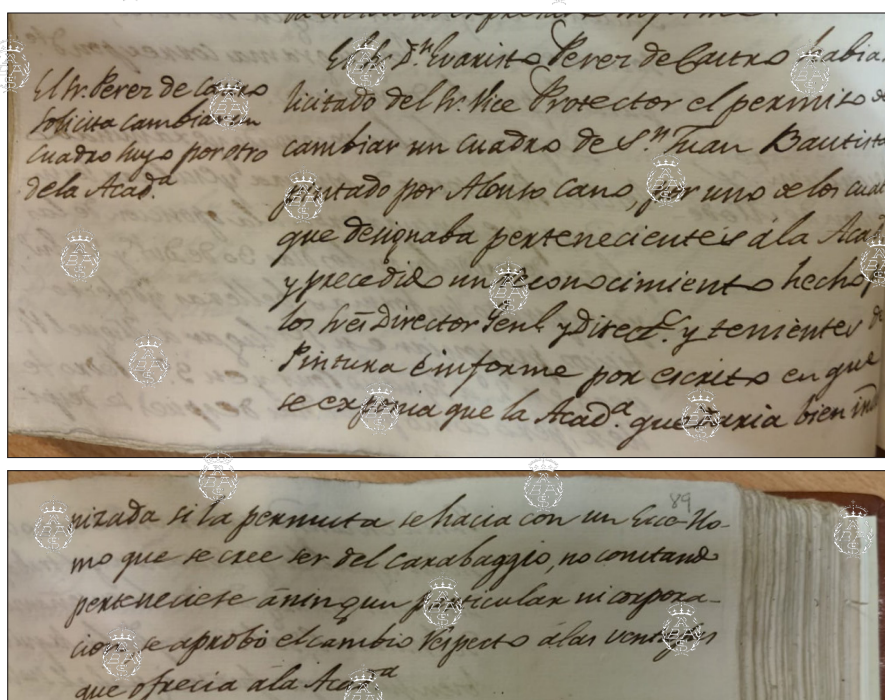 El Sr. Perez de Castro
solicita cambiar un
cuadro suyo por otro
de la Acad.a
El Sr. D.n Evaristo Perez de Castro habia
licitado del Sr. Vice Protector el permiso de
cambiar un cuadro de S.n Juan Bautista
pintado por Alonso Cano, por uno de los cua
que designaba pertenecientes á la Acad.a
y precedido un reconocimiento hecho p
los Sres Director Genl. y Direct.s y tenientes de
Pintura é informe por escrito en que
se exponia que la Acad.a quedaria bien in
89
nizada si la permuta se hacia con un Ecce-Ho-
mo que se cree ser del Carabaggio, no constando
perteneciese á ningun particular ni corpora-
cion, se aprobó el cambio respecto á las ventajas
que ofrecia á la Acad.a